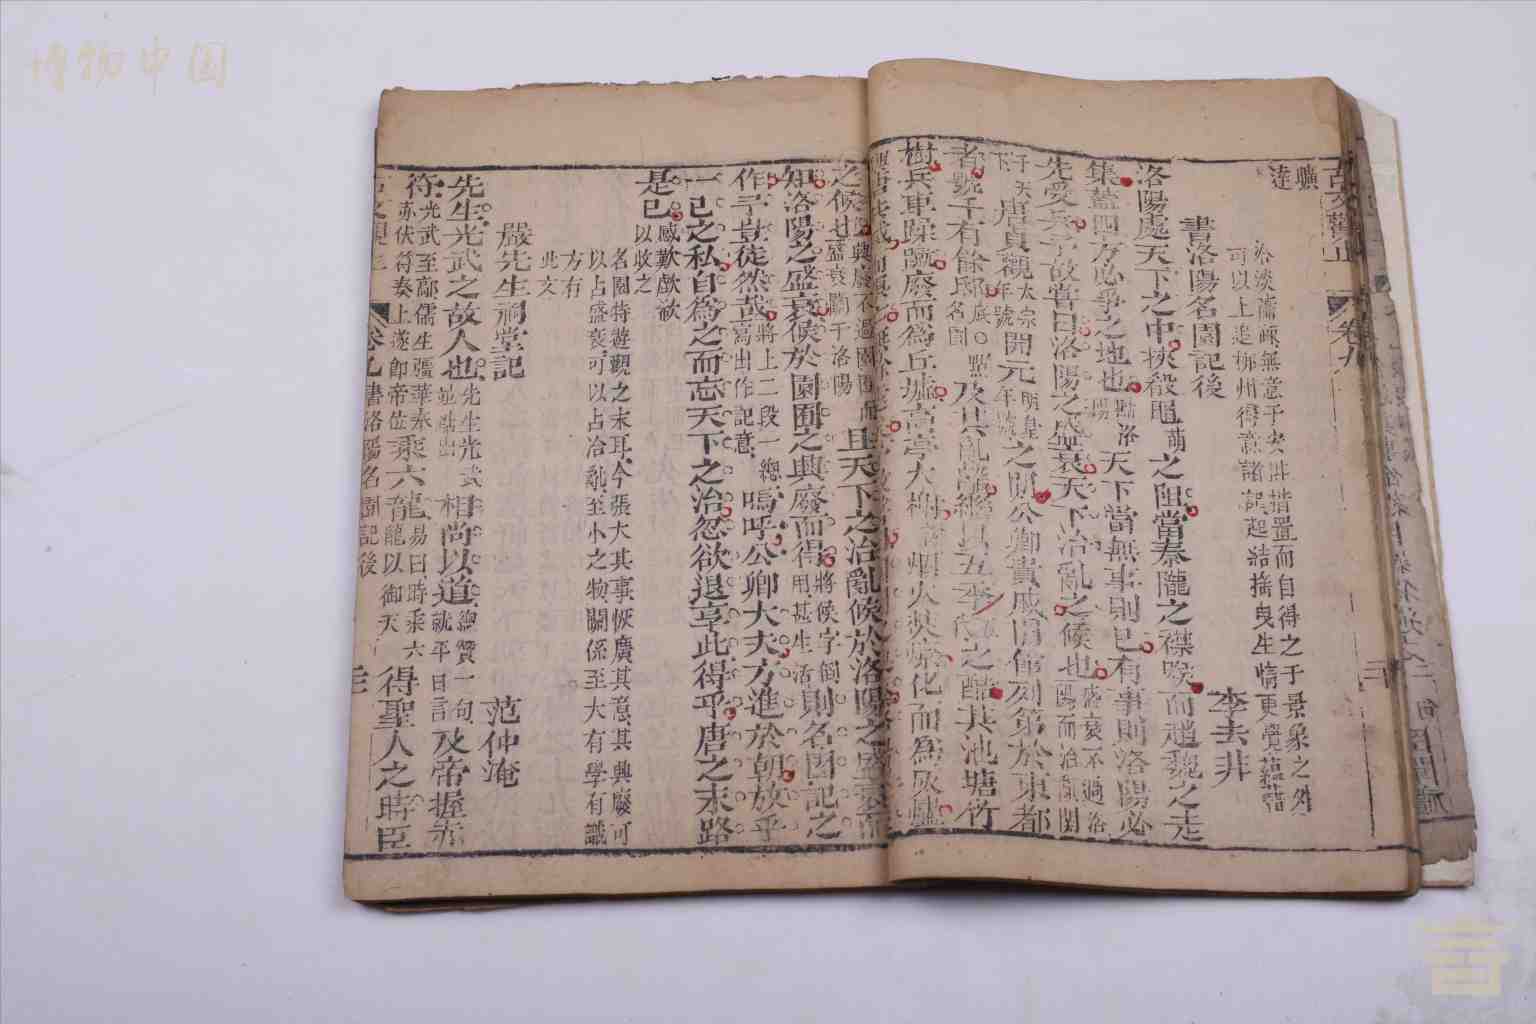 博物中国
古文觀止 卷九
曠達
於淡蕩疎無意于安排措置而自得之于景象之外
可以上追柳州得意諸記起結摘曳生情更覺蘊藉
書洛陽名園記後 李去非
洛陽處天下之中挾殽黽之阻當秦隴之襟喉而趙魏之走
集蓋四方必爭之地也天下當無事則已有事則洛陽必
先受兵予故嘗曰洛陽之盛衰天下治亂之候也
唐貞觀太宗年號開元明皇年號之間公卿貴戚開館列第於東都
者號千有餘邸及其亂離繼以五季之酷其池塘竹
樹兵車蹂蹴廢而為丘墟高亭大榭烟火焚燎化而為灰燼
之候也且天下之治亂候於洛陽之盛衰而
知洛陽之盛衰候於園囿之興廢而得將候字倒用甚生活則名園記之
作予豈徒然哉寫出作記意將上二段一總嗚呼公卿大夫方進於朝放乎
一己之私自為之而忘天下之治忽欲退享此得乎唐之末路
是已感歎歔欷以收之
名園特遊觀之末耳今張大其事恢廣其意其興廢可
以占盛衰可以占治亂至小之物關係至大有學有識
方有此文
嚴先生祠堂記 范仲淹
先生光武之故人也先生光武並點出相尚以道總贊一句就平日言及帝握赤
符光武至鄗儒生彊華奉赤伏符奏上遂即帝位乘六龍易曰時乘六龍以御天得聖人之時臣
卷九 書洛陽名園記後